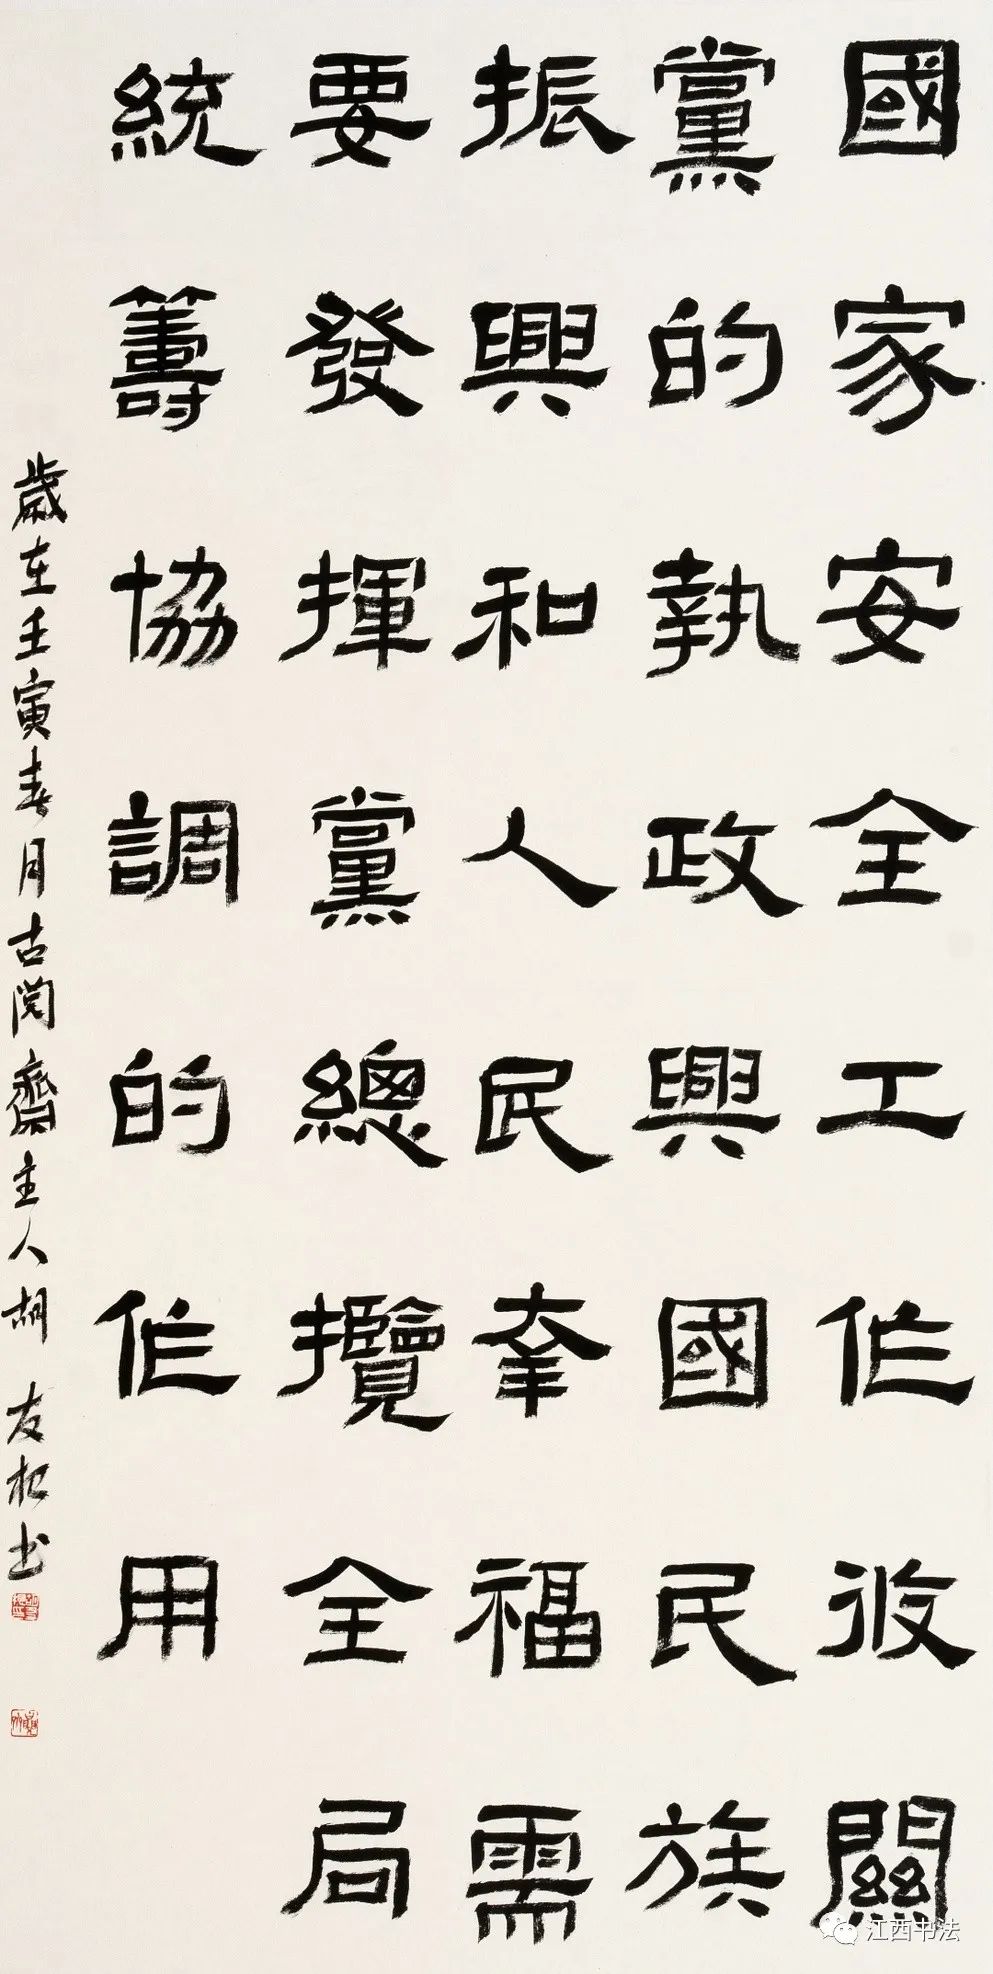 國家安全工作攸關
黨的執政興國民族
振興和人民幸福需
要發揮黨總攬全局
統籌協調的作用
歲在壬寅春月古閲齋主人胡友松书
江西书法